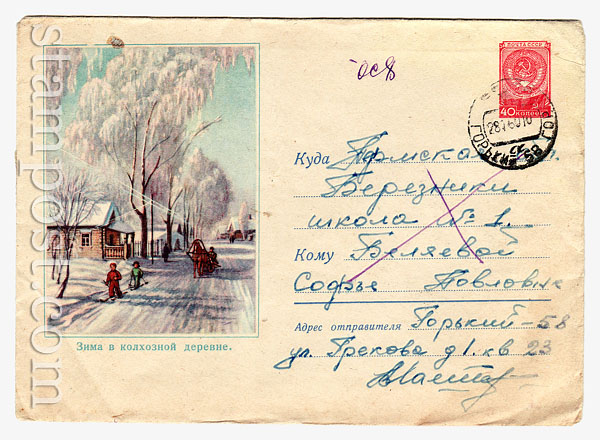 stampost.com
ПОЧТА СССР
40 КОПЕЕК
28 1 60 10
ГОРЬКИЙ-58
Куда Пермская
Березники
школа № 1
Кому Беляевой
Софье Павловне
Адрес отправителя Горький-58
ул. Грекова д1. кв 23
Зима в колхозной деревне.